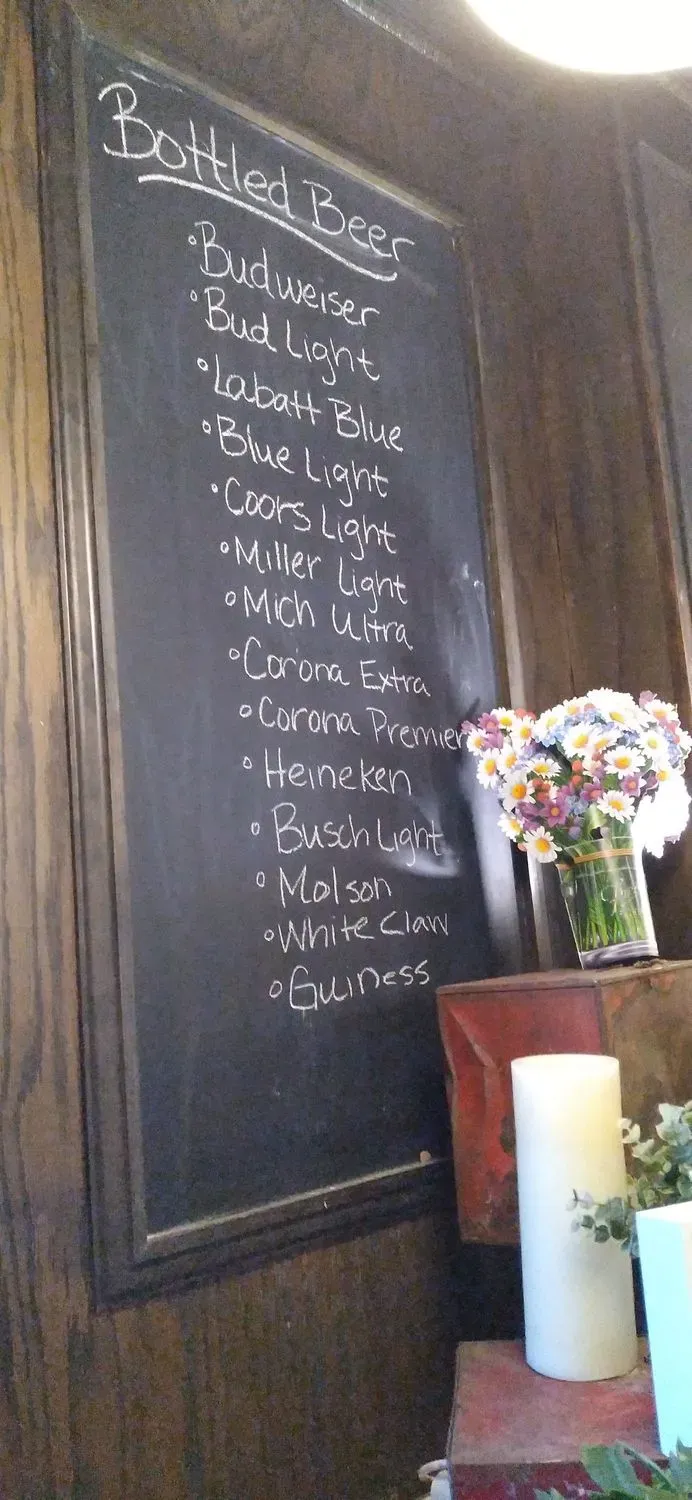 Bottled Beer
°Budweiser
°Bud Light
°Labatt Blue
°Blue Light
°Coors Light
°Miller Light
°Mich Ultra
°Corona Extra
°Corona Premier
°Heineken
°Busch Light
°Molson
°White Claw
°Guiness